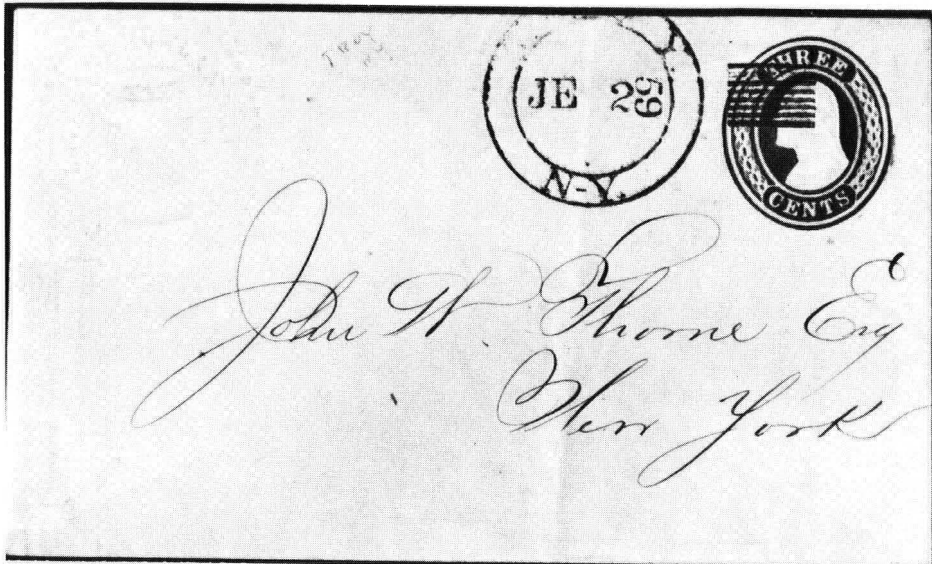 JE 29
59
N-Y.
THREE
CENTS
John W. Thorne Esq
New York